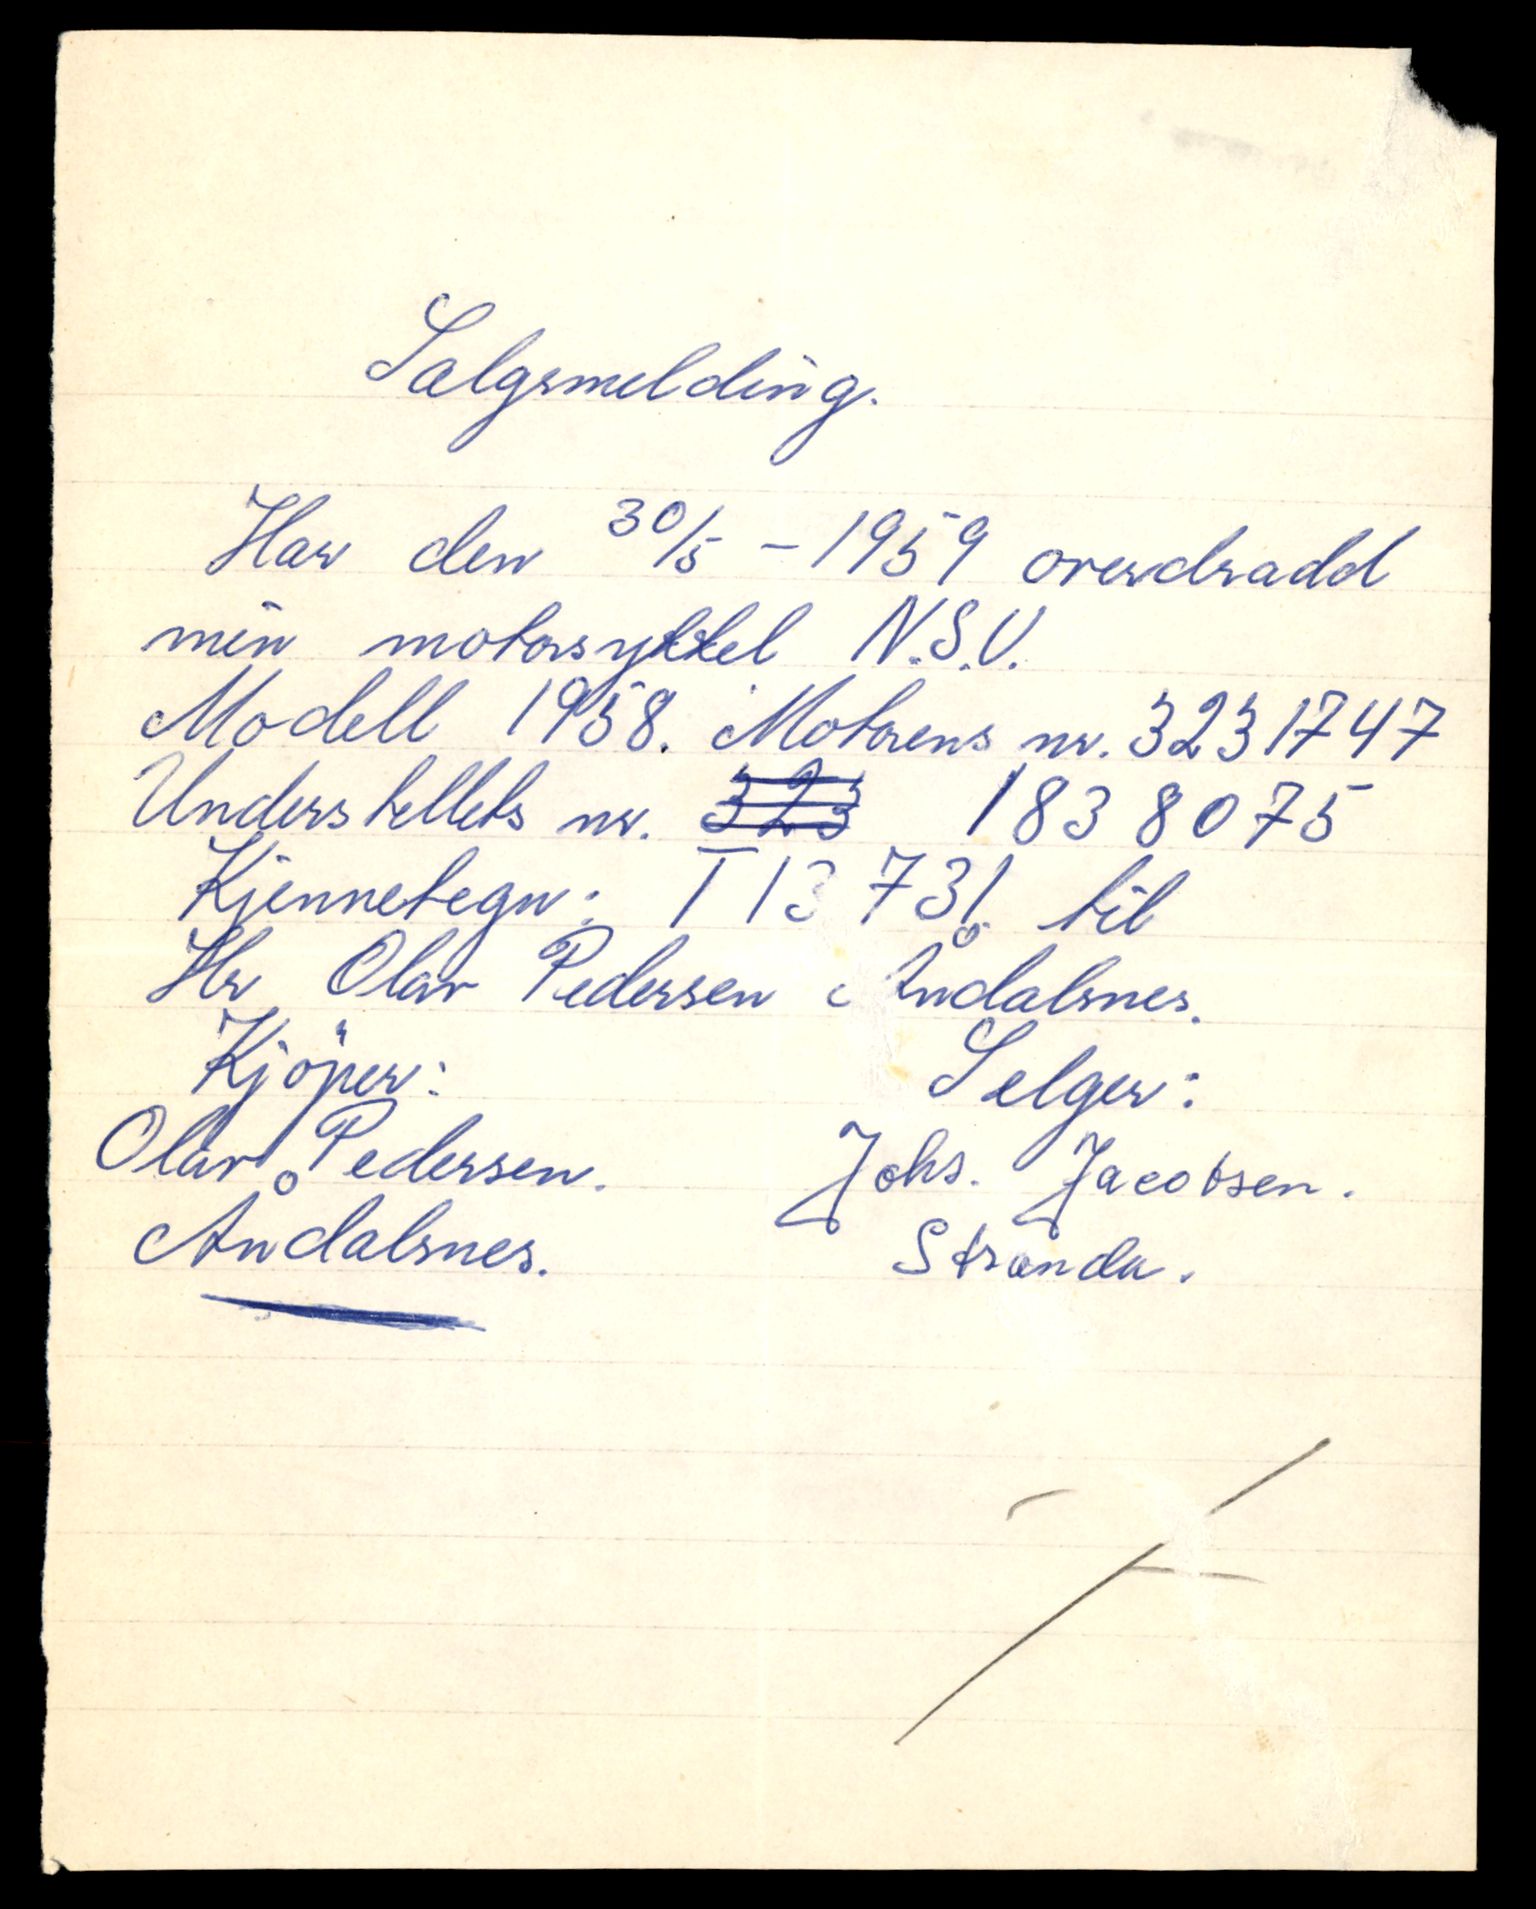 Salgsmelding.
Har den 30/5 - 1959 overdradd
min motorsykkel N.S.U.
Modell 1958. Motorens nr. 3231747
Understellets nr. 323 1838075
Kjennetegn: T 13731 til
Hr Olav Pedersen Åndalsnes.
Kjöper: Selger:
Olav Pedersen. Johs. Jacobsen.
Åndalsnes. Stranda.